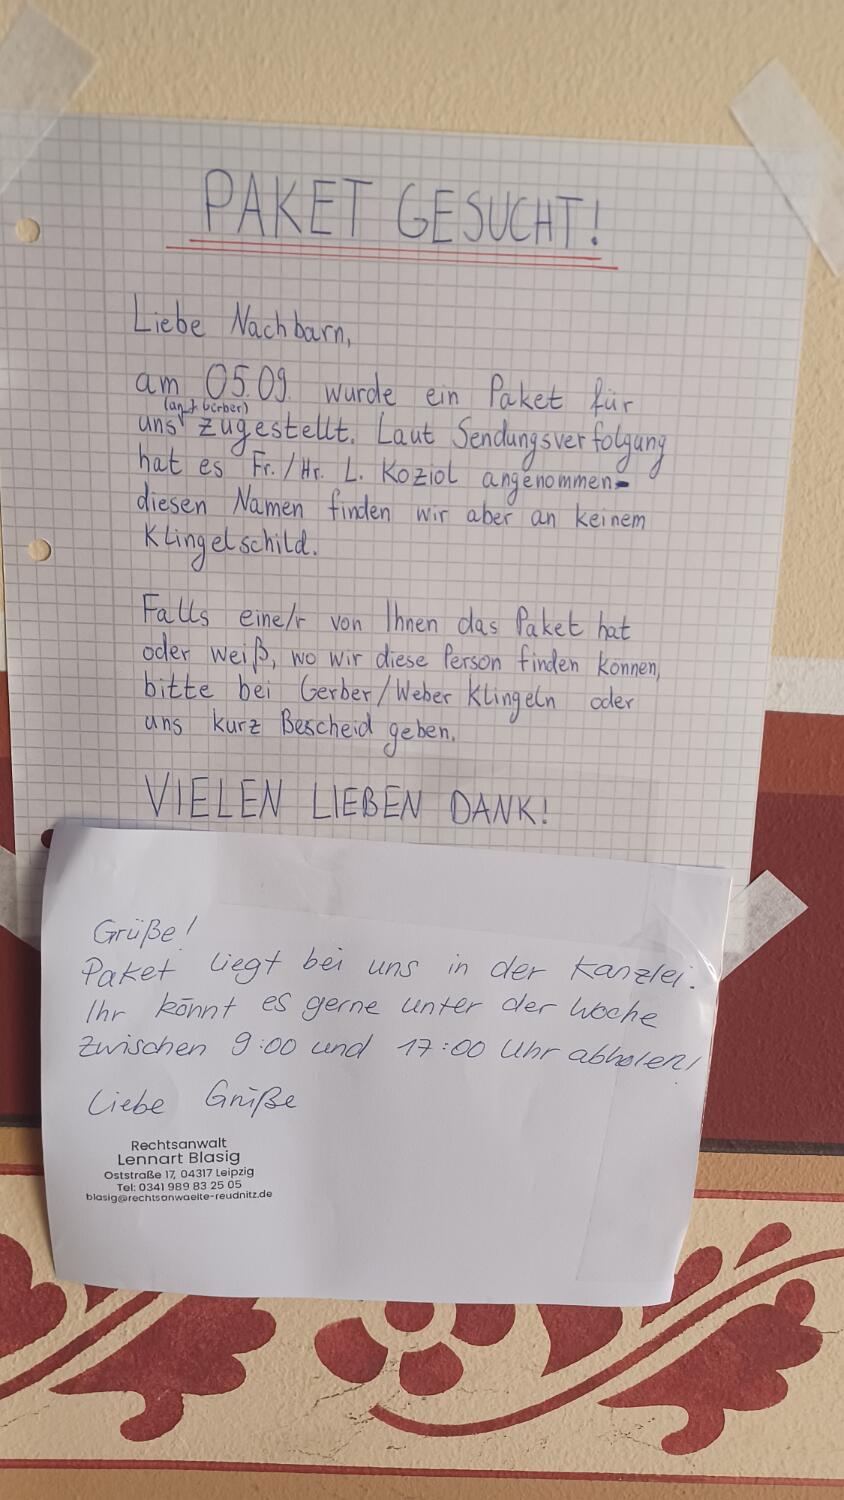 PAKET GESUCHT!
Liebe Nachbarn,
am 05.09. wurde ein Paket für
(an J. Gerber)
uns zugestellt. Laut Sendungsverfolgung
hat es Fr./Hr. L. Koziol angenommen-
diesen Namen finden wir aber an keinem
Klingelschild.
Falls eine/r von Ihnen das Paket hat
oder weiß, wo wir diese Person finden können,
bitte bei Gerber/Weber Klingeln oder
uns kurz Bescheid geben.
VIELEN LIEBEN DANK!
Grüße!
Paket liegt bei uns in der Kanzlei.
Ihr könnt es gerne unter der Woche
zwischen 9:00 und 17:00 Uhr abholen!
Liebe Grüße
Rechtsanwalt
Lennart Blasig
Oststraße 17, 04317 Leipzig
Tel: 0341 989 83 25 05
blasig@rechtsanwaelte-reudnitz.de